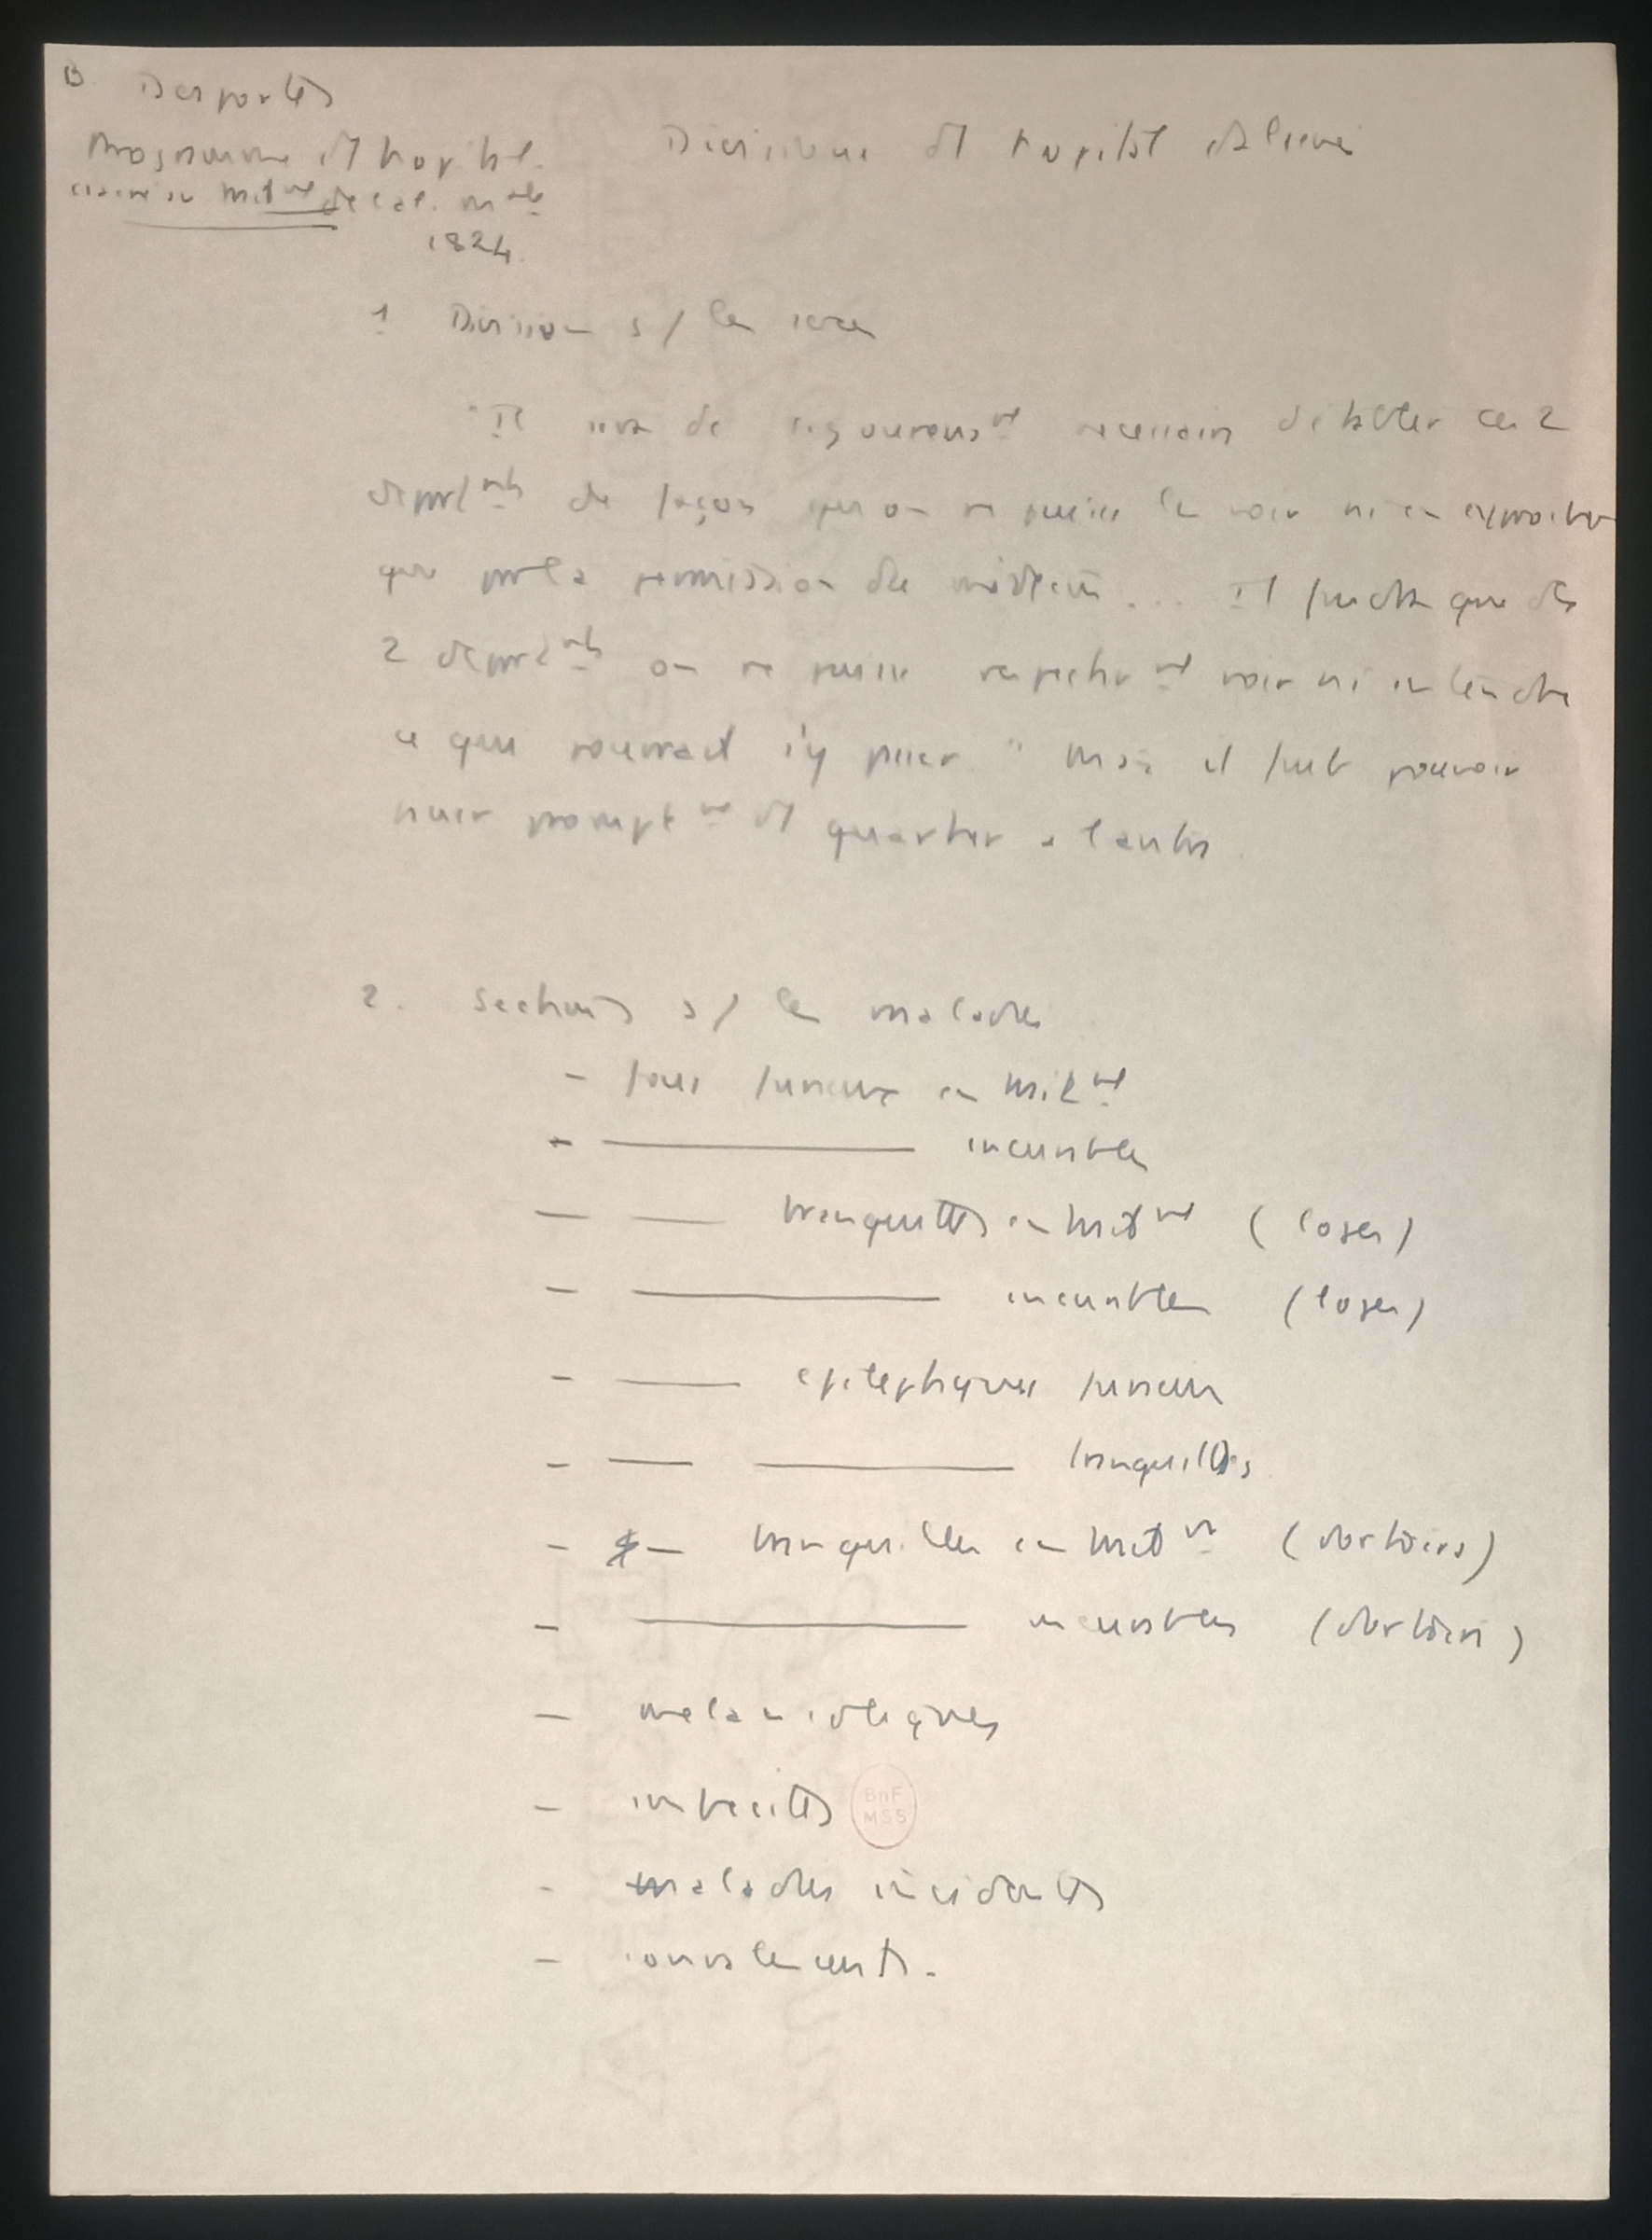 B. Desportes
Programme d'1 hopital
consacré au trait nt de l'al. m ale
1824.
Divisions d'1 hopital d'aliénés
1 Division s/ les sexes
"Il sera de rigoureuse nt necessaire d'isoler ces 2
depart nts de façon qu'on ne puisse les voir ni en approcher
que par la permission du médecin... Il faudra que des
2 depart nts on ne puisse respectiv nt voir ni entendre
ce qui pourrait s'y passer." Mais il faut pouvoir
prompt nt d'1 quartier a l'autre.
2. Sections s/ les malades
- fous furieux en trait nt
- ——— incurables
- — tranquilles en trait nt (loges)
- ——— incurables (loges)
- — epileptiques furieux
- — ——— tranquilles
- — tranquilles en trait nt (dortoirs)
- ——— incurables (dortoirs)
- melancoliques
- imbeciles
BnF
MSS
- malades incidents
- convalescents.